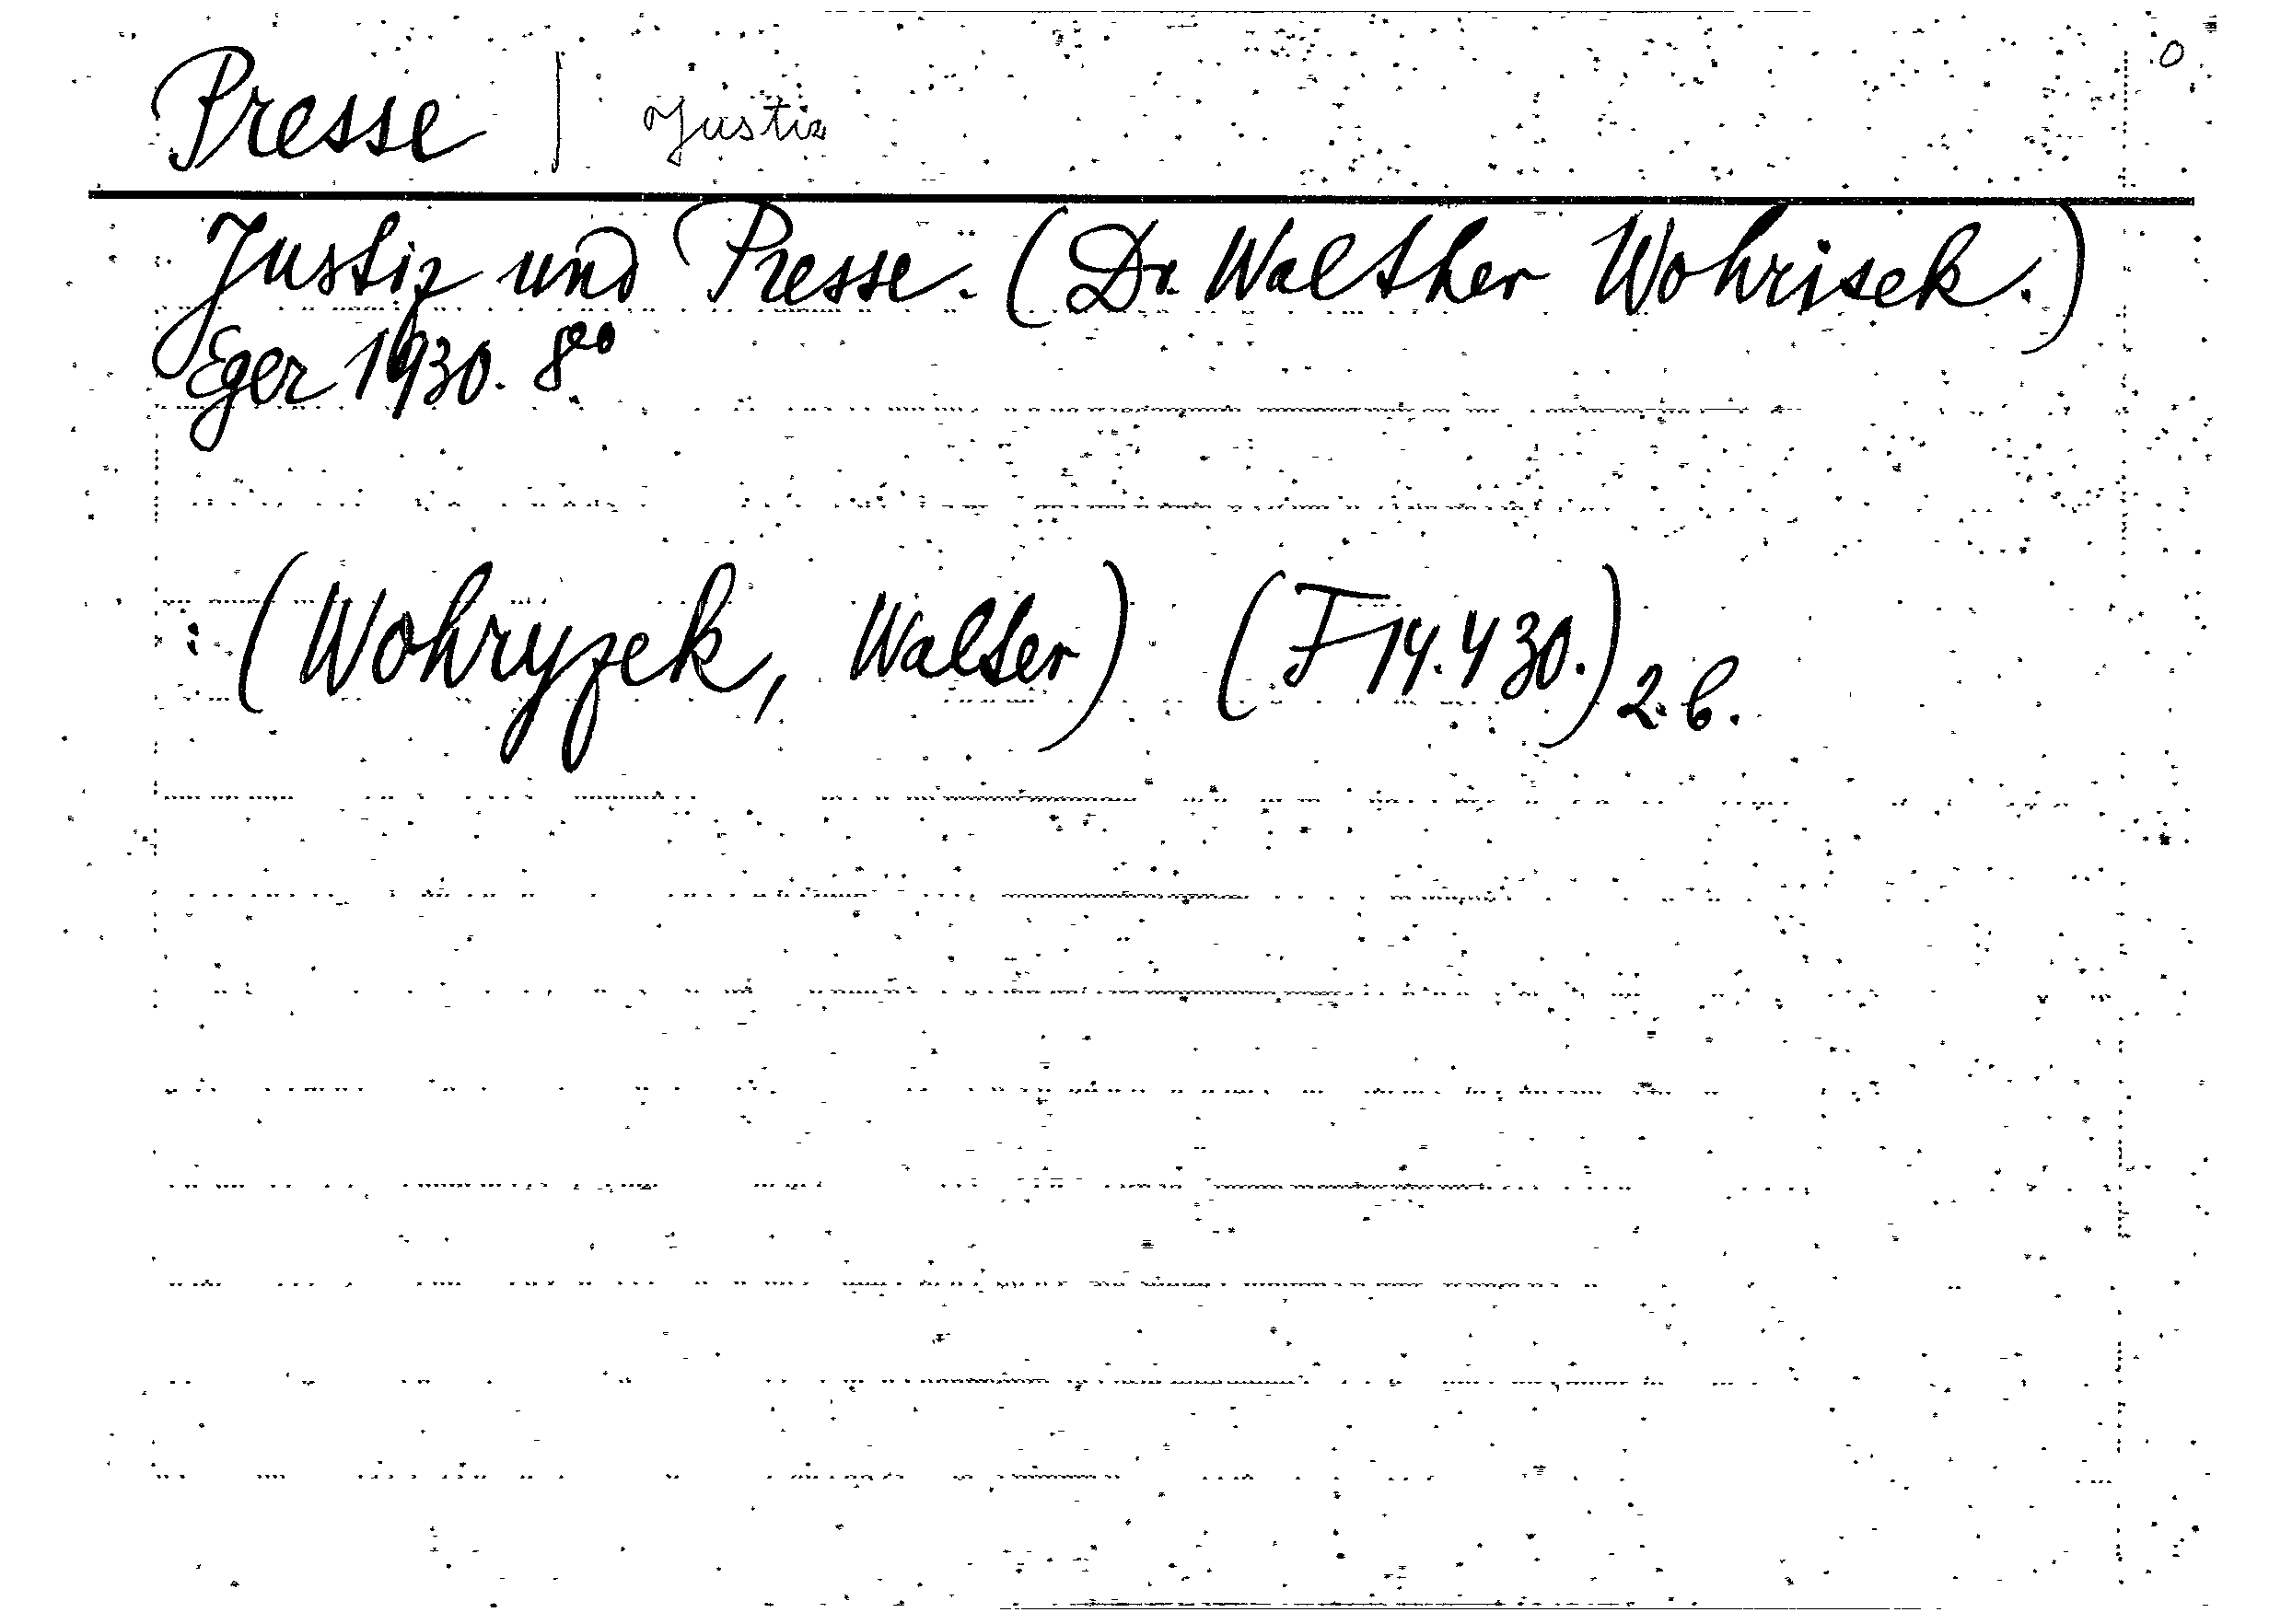 Presse | Justiz
Justiz und Presse. (Dr. Walther Wohrisek.)
Eger 1930. 8°°
(Wohryzek, Walter) (F 14.430.) 2.6.